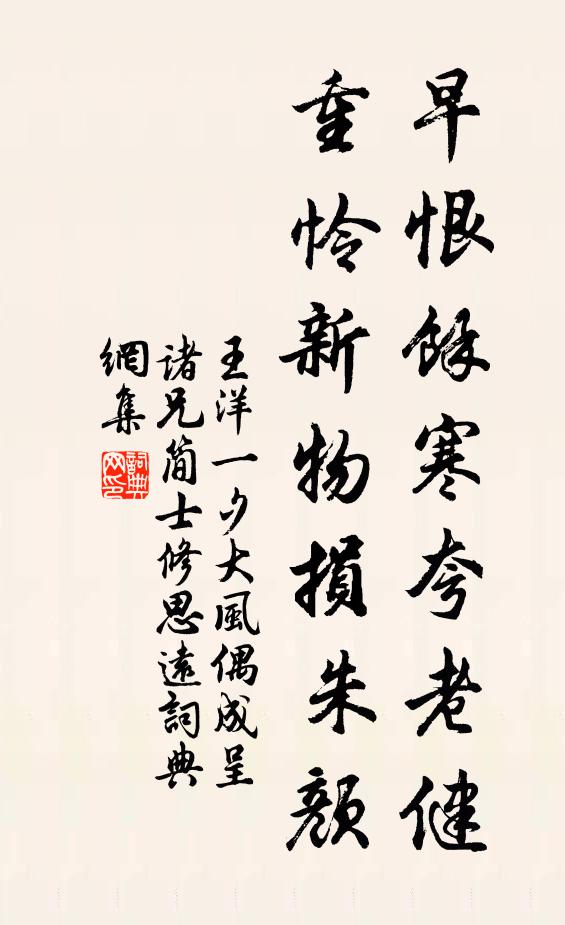 早恨餘寒夸老健
重怜新物損朱顏
王洋一夕大風偶成呈
諸兄簡士修思遠詞典
網集
詞典
网印